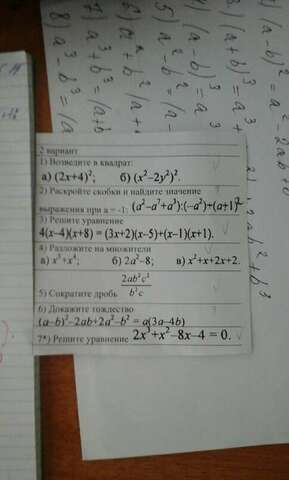 2 вариант
1) Возведите в квадрат:
а) (2x+4)²; б) (x²−2y³)².
2) Раскройте скобки и найдите значение
выражения при a = -1: (a²−a⁷+a³):(−a²)+(a+1)²
3) Решите уравнение
4(x−4)(x+8) = (3x+2)(x−5)+(x−1)(x+1).
4) Разложите на множители
а) x³+x⁴; б) 2a²−8; в) x²+x+2x+2.
5) Сократите дробь 2ab²c³/b³c
6) Докажите тождество
(a−b)²−2ab+2a²−b² = a(3a−4b)
7*) Решите уравнение 2x³+x²−8x−4 = 0.
(a-b)² = a² - 2ab +
(a+b)³ = a³ +
(a-b)³ = a³
a² - b² = (a -
7) a³ + b³ = (a
8) a³ - b³ = (a